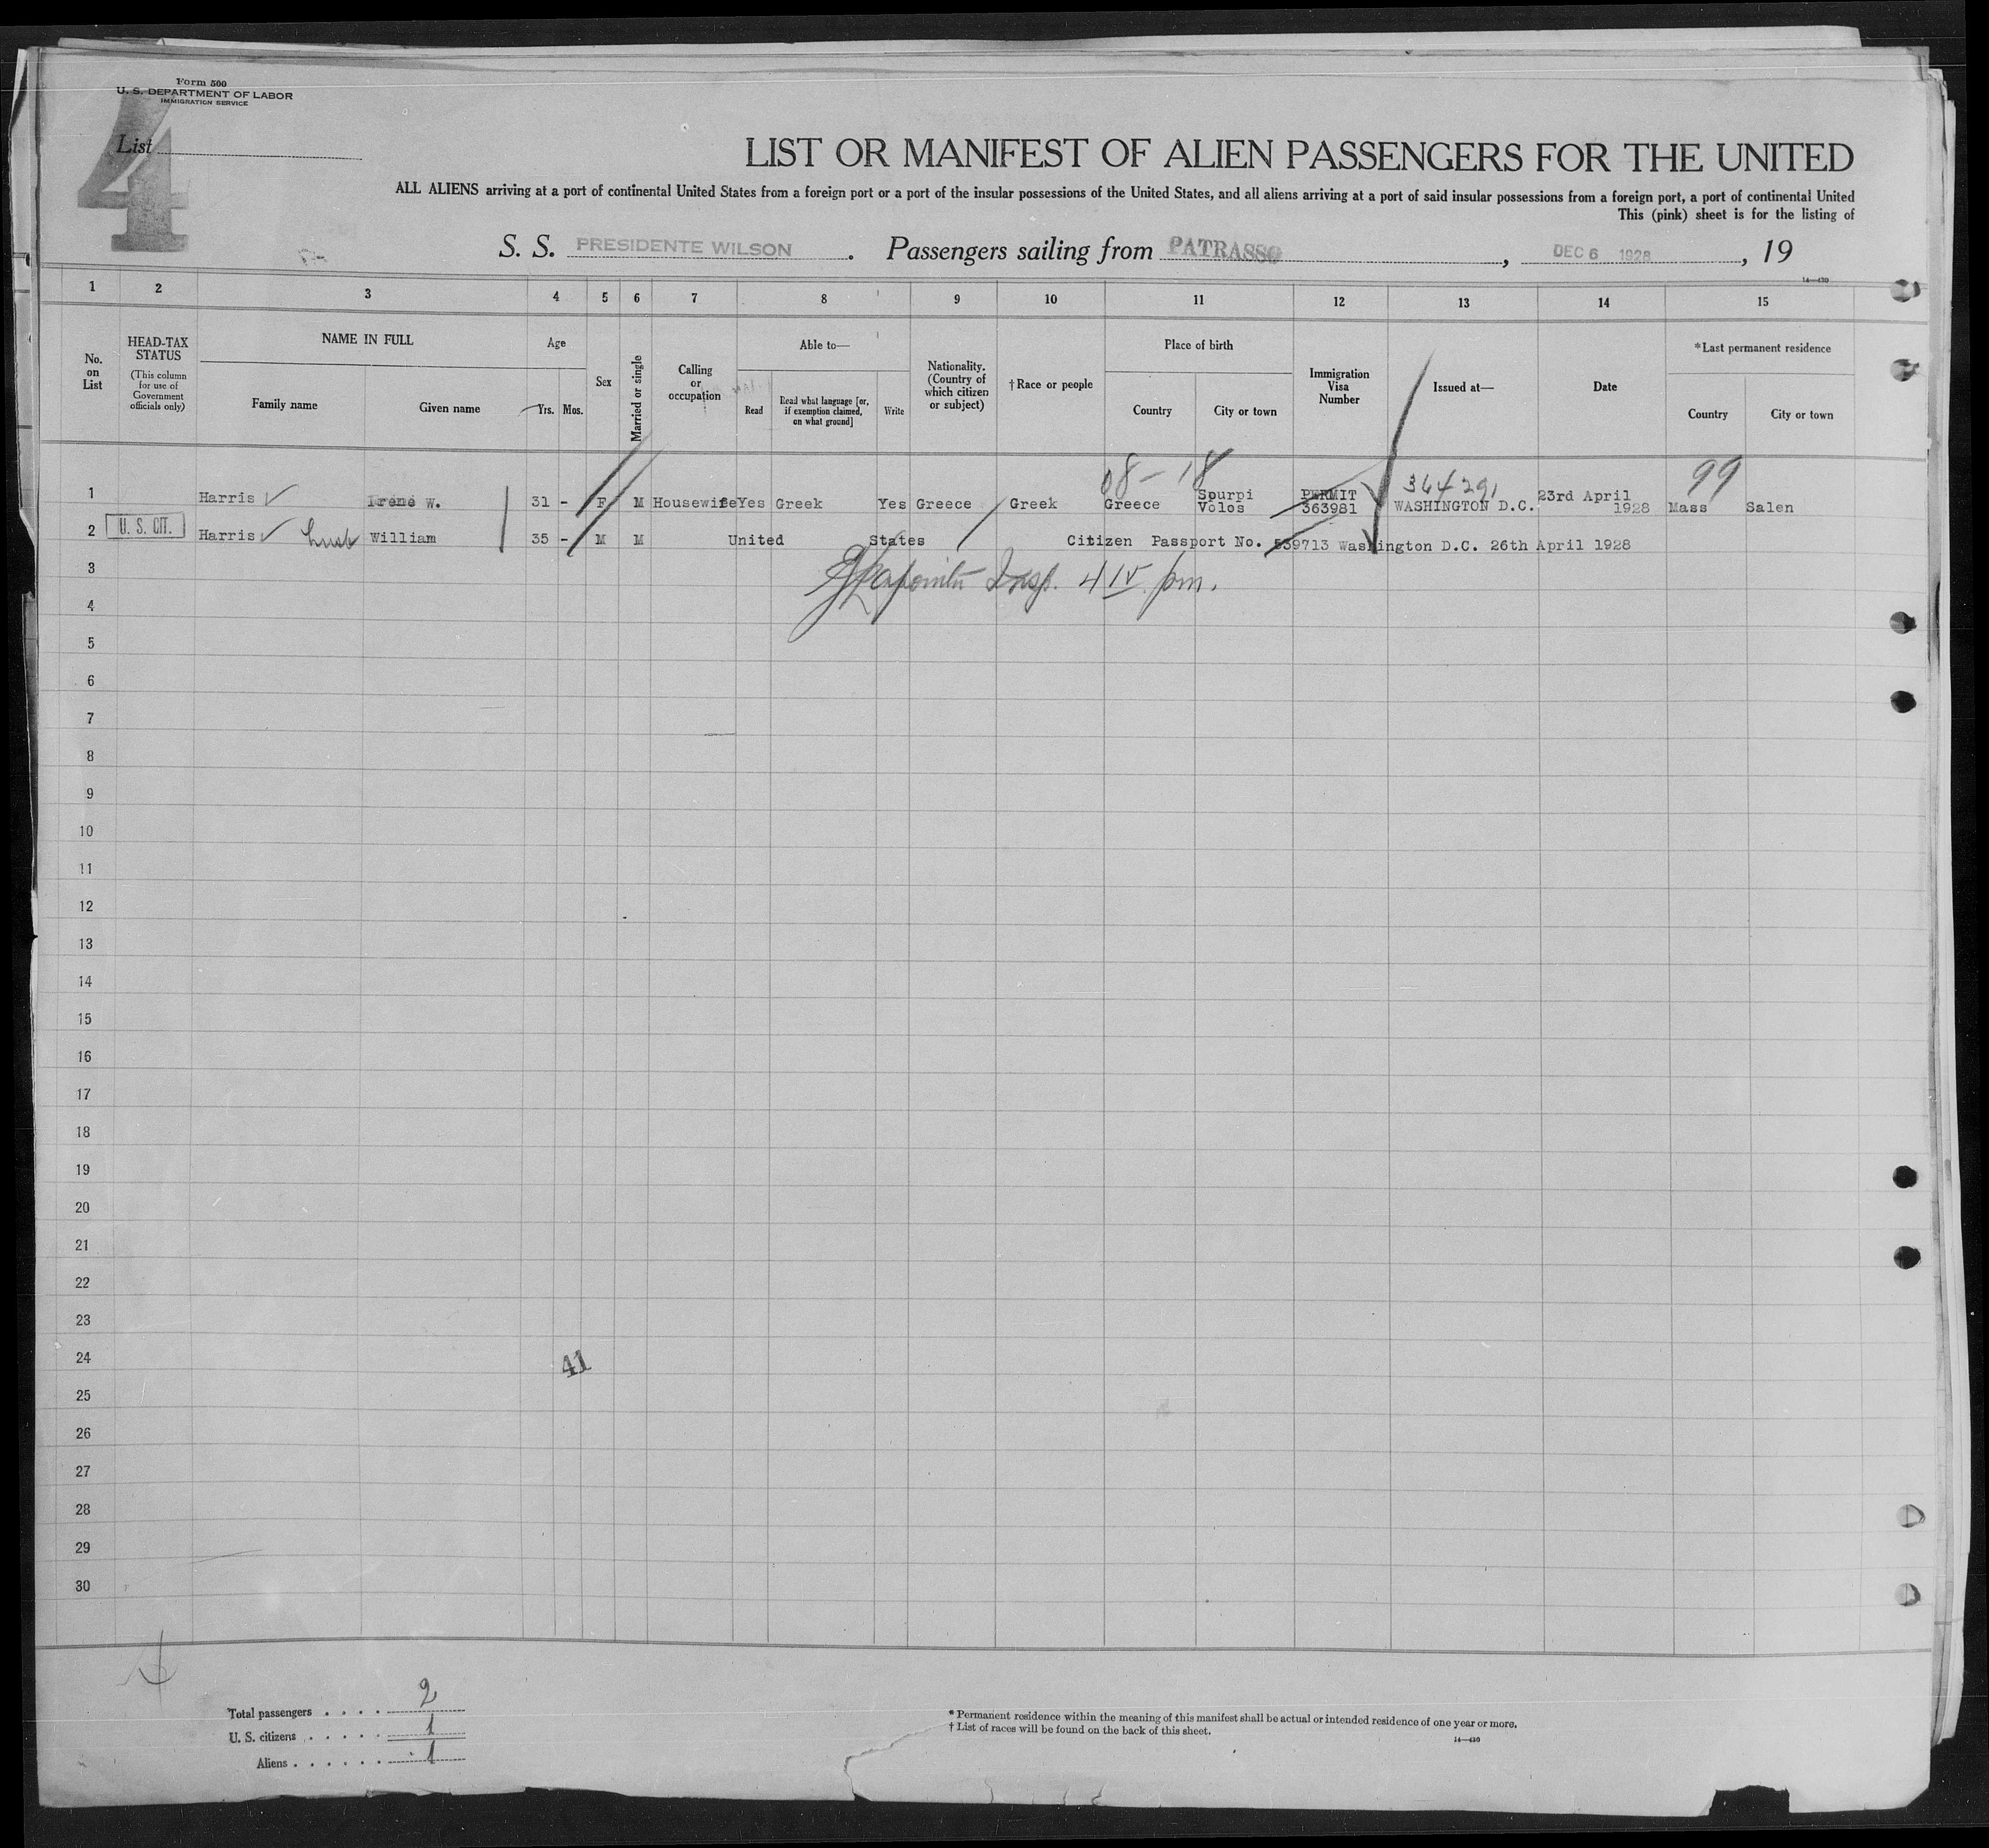 Form 500
U. S. DEPARTMENT OF LABOR
IMMIGRATION SERVICE
4
List
LIST OR MANIFEST OF ALIEN PASSENGERS FOR THE UNITED
ALL ALIENS arriving at a port of continental United States from a foreign port or a port of the insular possessions of the United States, and all aliens arriving at a port of said insular possessions from a foreign port, a port of continental United
This (pink) sheet is for the listing of
S. S. PRESIDENTE WILSON . Passengers sailing from PATRASSO , DEC 6 1928 , 19
14—430
1 2 3 4 5 6 7 8 9 10 11 12 13 14 15
No. on List
HEAD-TAX STATUS
(This column for use of Government officials only)
NAME IN FULL
Family name
Given name
Age
Yrs. Mos.
Sex
Married or single
Calling or occupation
Able to—
Read
Read what language [or, if exemption claimed, on what ground]
Write
Nationality. (Country of which citizen or subject)
† Race or people
Place of birth
Country
City or town
Immigration Visa Number
Issued at—
Date
*Last permanent residence
Country
City or town
08- 18
364291
99
1 Harris Irene W. 31 - F M Housewife Yes Greek Yes Greece Greek Greece Sourpi Volos PERMIT 363981 WASHINGTON D.C. 23rd April 1928 Mass Salen
2 U. S. CIT. Harris husb William 35 - M M United States Citizen Passport No. 539713 Washington D.C. 26th April 1928
3
Insp. 4 15 pm.
4
5
6
7
8
9
10
11
12
13
14
15
16
17
18
19
20
21
22
23
24
41
25
26
27
28
29
30
Total passengers . . . . 2
U. S. citizens . . . . . 1
Aliens . . . . . . 1
* Permanent residence within the meaning of this manifest shall be actual or intended residence of one year or more.
† List of races will be found on the back of this sheet.
14—430